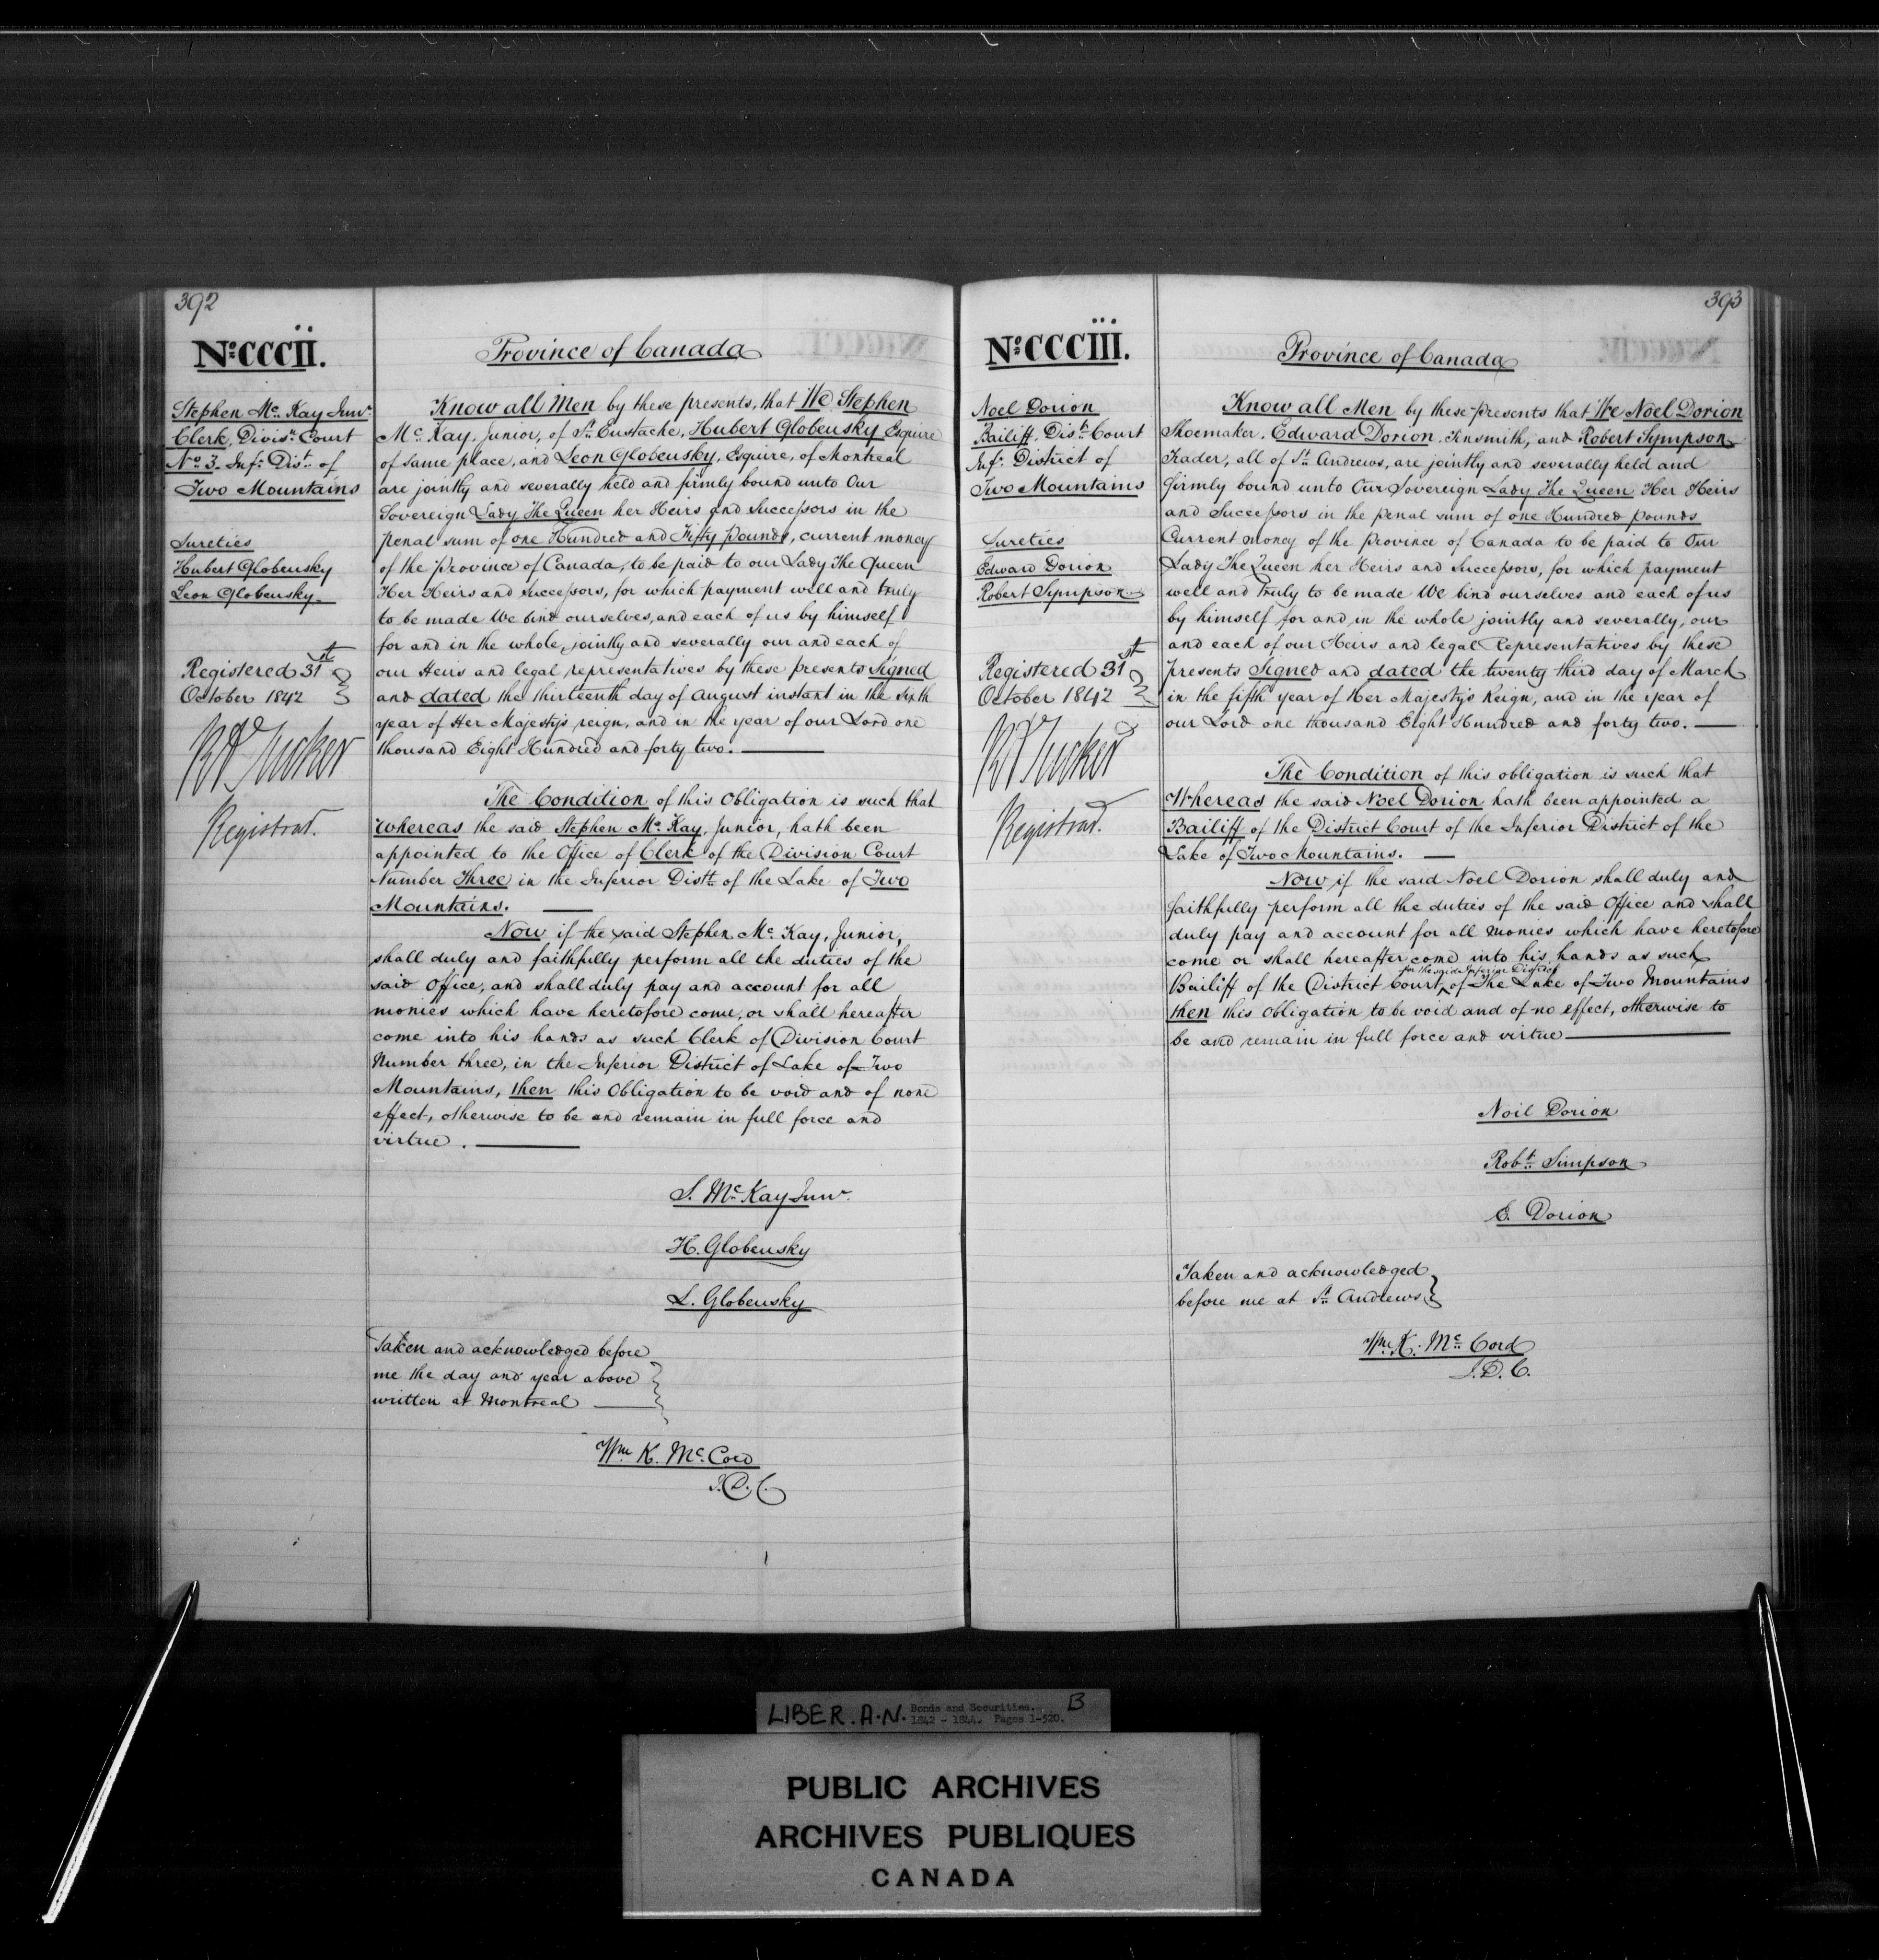 392
Nº CCCII.
Stephen Mc. Kay Junr.
Clerk, Divisn. Court
No. 3. Infr. Dist. of
Two Mountains
Sureties
Hubert Globensky
Leon Globensky
Registered 31st
October 1842
RA Tucker
Registrar.
Province of Canada
Know all Men by these presents, that We Stephen
Mc. Kay, Junior, of St. Eustache, Hubert Globensky Esquire
of same place, and Leon Globensky, Esquire, of Montreal
are jointly and severally held and firmly bound unto Our
Sovereign Lady The Queen her Heirs and Successors in the
penal sum of one Hundred and Fifty Pounds, current money
of the Province of Canada, to be paid to our Lady The Queen
Her Heirs and Successors, for which payment well and truly
to be made We bind ourselves, and each of us by himself
for and in the whole, jointly and severally our and each of
our Heirs and legal representatives by these presents Signed
and dated the thirteenth day of August instant in the sixth
year of Her Majesty's reign, and in the year of our Lord one
thousand Eight Hundred and forty two.
The Condition of this Obligation is such that
Whereas the said Stephen Mc. Kay, Junior, hath been
appointed to the Office of Clerk of the Division Court
Number Three in the Inferior Distt. of the Lake of Two
Mountains.
Now if the said Stephen Mc. Kay, Junior,
shall duly and faithfully perform all the duties of the
said Office, and shall duly pay and account for all
monies which have heretofore come, or shall hereafter
come into his hands as such Clerk of Division Court
Number three, in the Inferior District of Lake of Two
Mountains, then this Obligation to be void and of none
effect, otherwise to be and remain in full force and
virtue.
S. Mc. Kay Junr.
H. Globensky
L. Globensky
Taken and acknowledged before
me the day and year above
written at Montreal
Wm K. Mc. Cord
J.D.C.
393
Nº CCCIII.
Noel Dorion
Bailiff, Dist. Court
Infr. District of
Two Mountains
Sureties
Edward Dorion
Robert Sympson
Registered 31st
October 1842
RA Tucker
Registrar.
Province of Canada
Know all Men by these presents that We Noel Dorion
Shoemaker, Edward Dorion, Tinsmith, and Robert Sympson
Trader, all of St. Andrews, are jointly and severally held and
firmly bound unto Our Sovereign Lady The Queen Her Heirs
and Successors in the penal sum of one Hundred pounds
Current money of the Province of Canada to be paid to Our
Lady The Queen her Heirs and Successors, for which payment
well and Truly to be made We bind ourselves and each of us
by himself for and in the whole jointly and severally, our
and each of our Heirs and legal Representatives by these
presents Signed and dated the twenty third day of March
in the fifth year of Her Majesty's Reign, and in the year of
our Lord one thousand Eight Hundred and forty two.
The Condition of this obligation is such that
Whereas the said Noel Dorion hath been appointed a
Bailiff of the District Court of the Inferior District of the
Lake of Two Mountains.
Now if the said Noel Dorion shall duly and
faithfully perform all the duties of the said Office and shall
duly pay and account for all monies which have heretofore
come or shall hereafter come into his hands as such
for the said Inferior District
Bailiff of the District Court, of The Lake of Two Mountains
then this obligation to be void and of no effect, otherwise to
be and remain in full force and virtue
Noil Dorion
Robt. Simpson
E. Dorion
Taken and acknowledged
before me at St. Andrews
Wm. K. Mc. Cord
J.D.C.
LIBER. A.N. Bonds and Securities. B
1842 - 1844. Pages 1-520.
PUBLIC ARCHIVES
ARCHIVES PUBLIQUES
CANADA